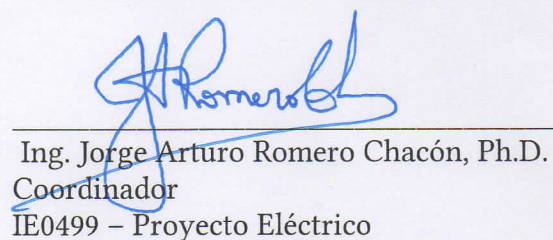 JARomeroCh
Ing. Jorge Arturo Romero Chacón, Ph.D.
Coordinador
IE0499 – Proyecto Eléctrico